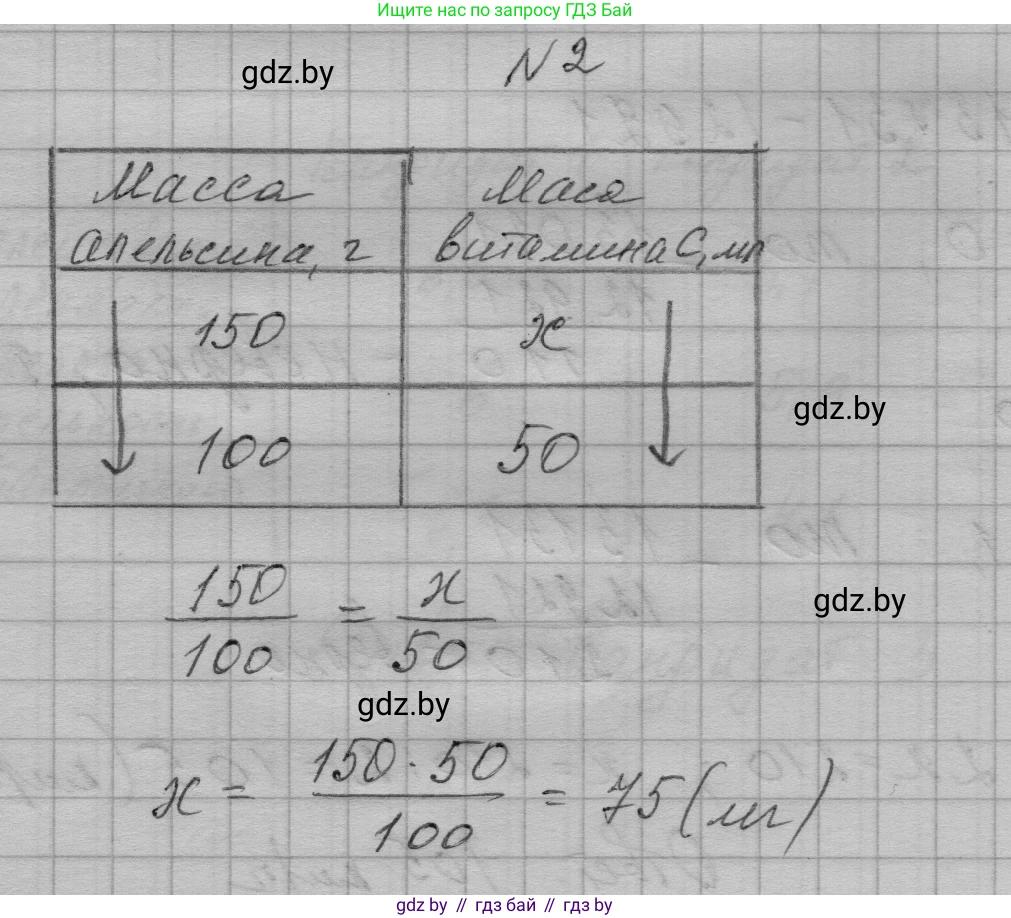 Ищите нас по запросу ГДЗ Бай
gdz.by
N 2
Масса апельсина, г
Маса витамина С, мг
150
x
100
50
gdz.by
150/100 = x/50
gdz.by
gdz.by
x = 150·50/100 = 75 (мг)
gdz.by // гдз бай // гдз by